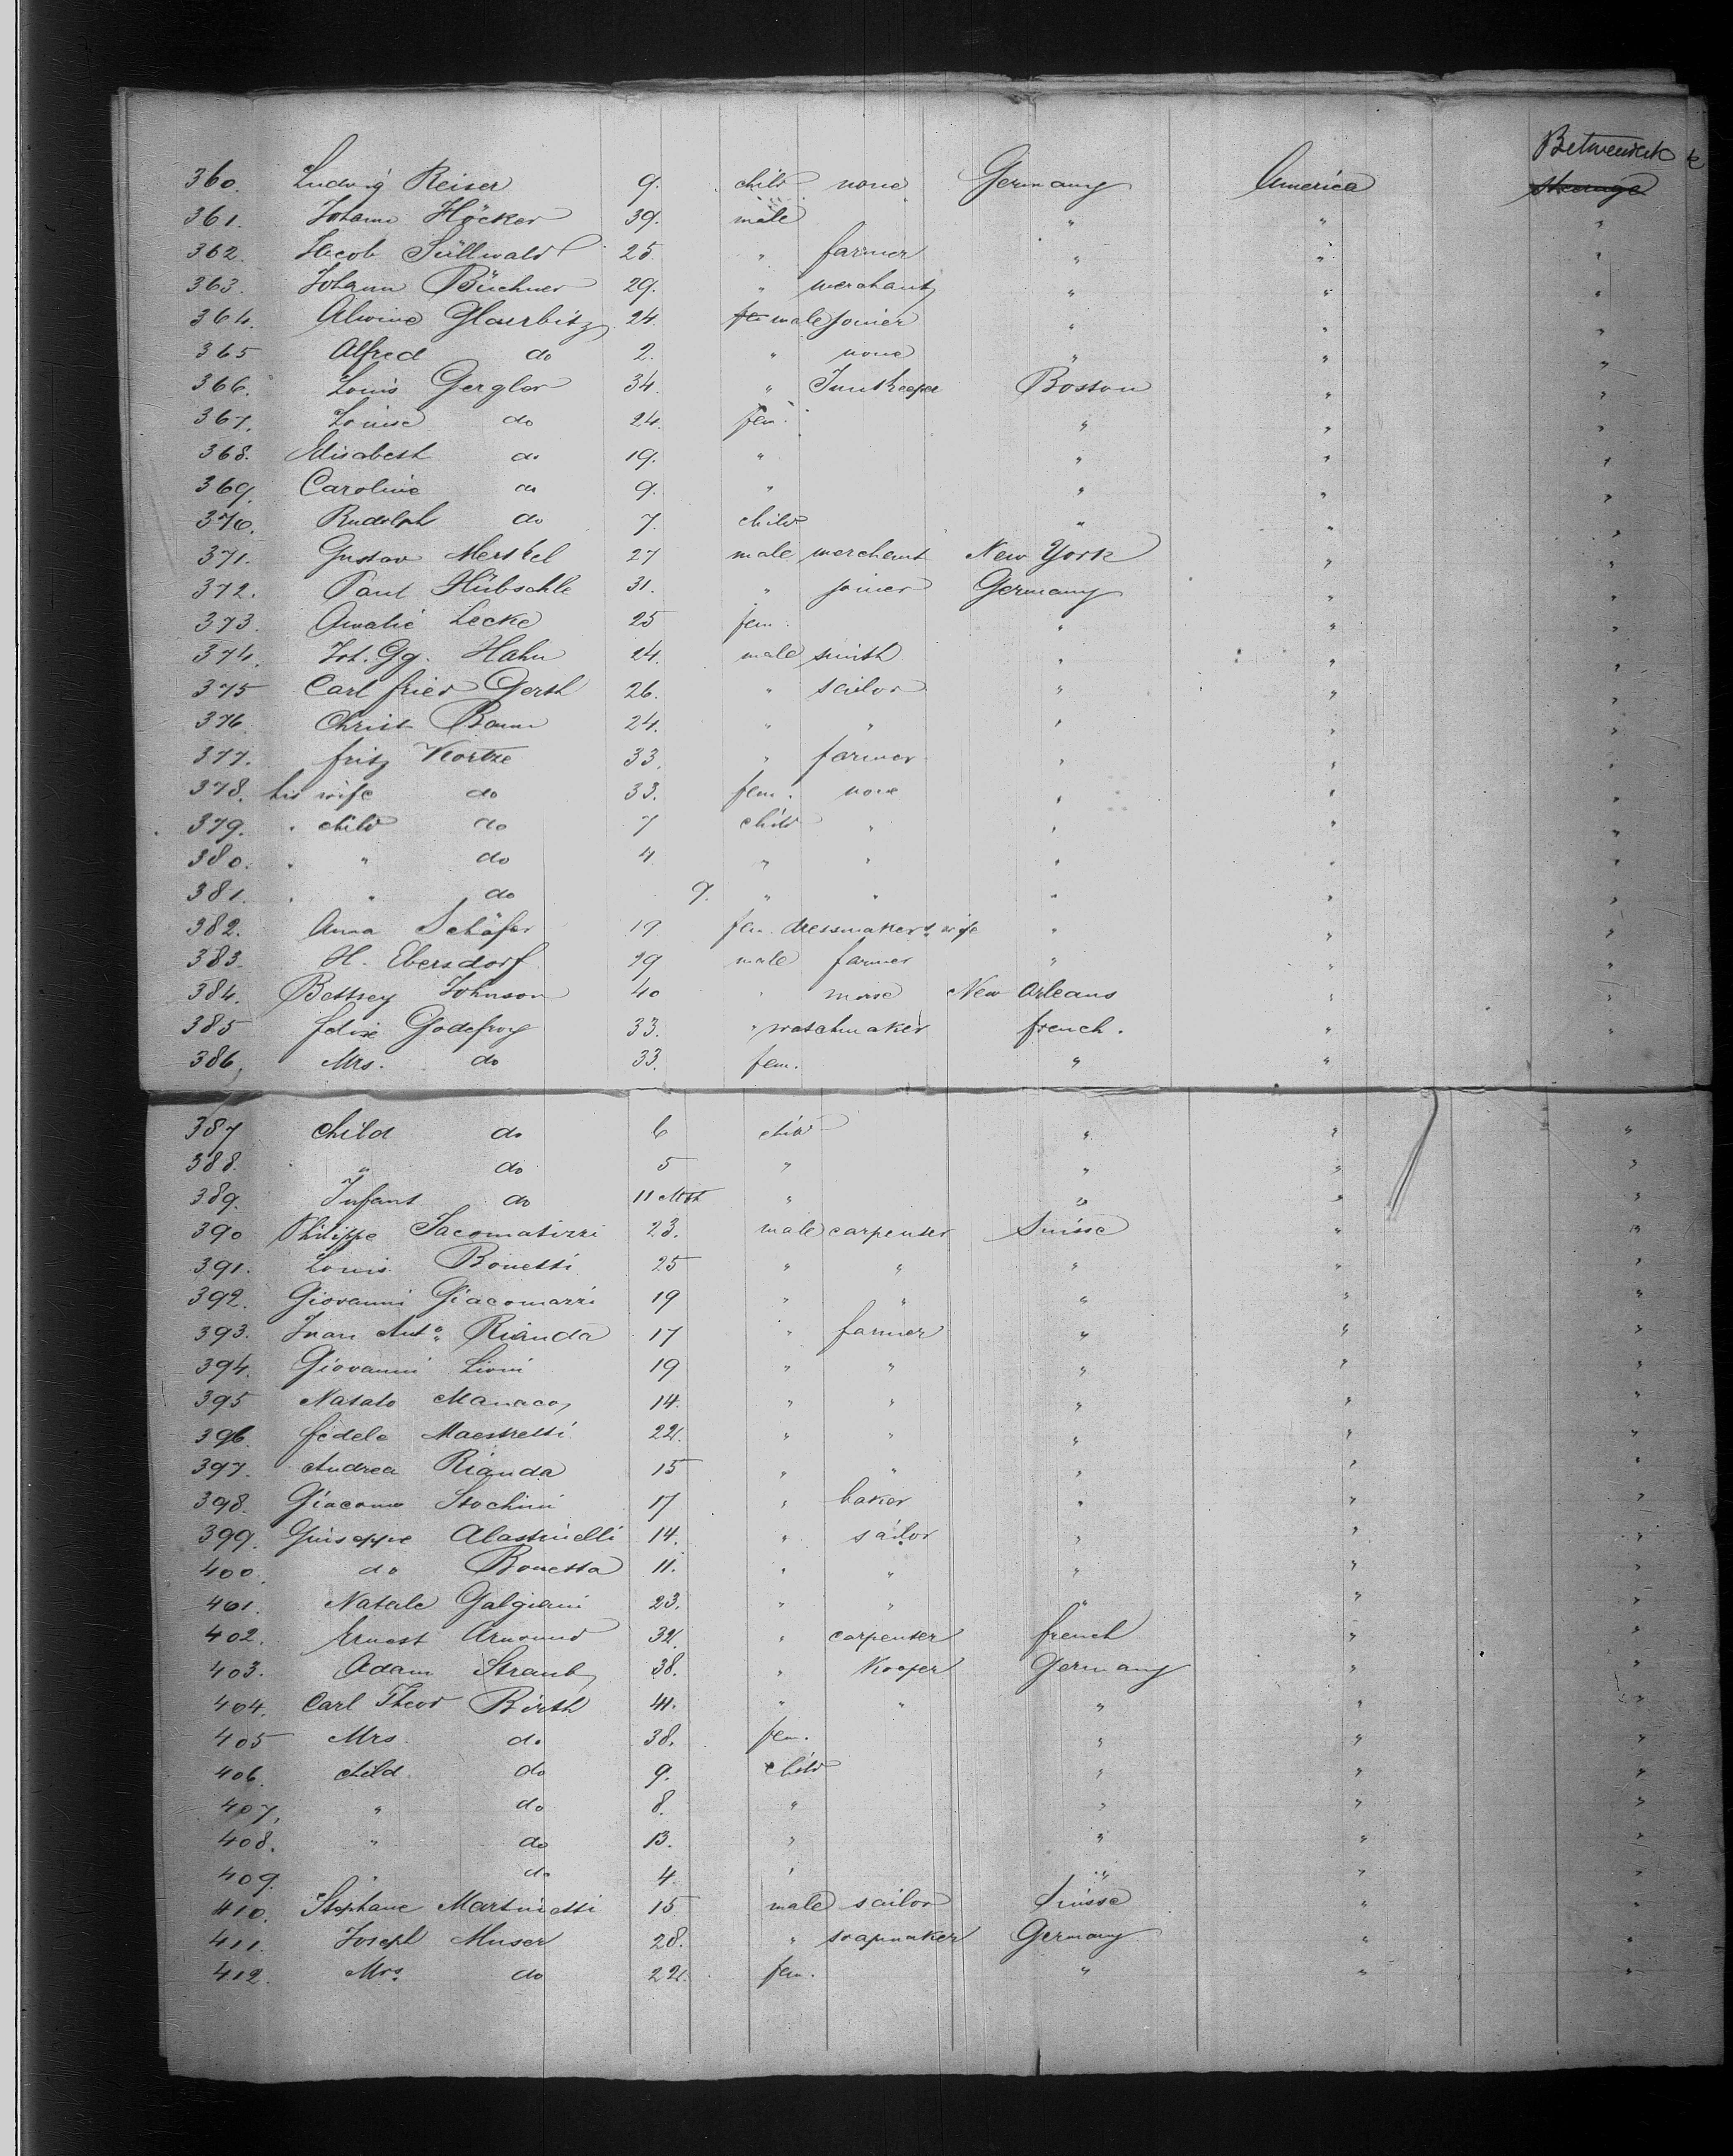 Betweendeck
360. Ludwig Reiser 9. child none Germany America steerage
361. Johann Höcker 39. male " " "
362. Jacob Süllwald 25. " farmer " " "
363. Johann Büchner 29. " merchant " " "
364. Alwine Glaubitz 24. female joiner " " "
365 Alfred do 2. " none " " "
366. Louis Gergler 34. " Innkeeper Boston " "
367. Louise do 24. fem. " " "
368. Elisabeth do 19. " " " "
369. Caroline do 9. " " " "
370. Rudolph do 7. child " " "
371. Gustav Merkel 27 male merchant New York " "
372. Paul Hübschle 31. " joiner Germany " "
373. Amalie Lecke 25 fem. " " "
374. Joh. Gg. Hahn 24. male smith " " "
375 Carl fried Gerth 26. " sailor " " "
376. Christ Baum 24. " " " " "
377. fritz Kortze 33. " farmer " " "
378. his wife do 33. fem. none " " "
379. " child do 7 child " " " "
380. " " do 4 " " " " "
381. " " do 9. " " " " "
382. Anna Schäfer 19. fem. dressmakers wife " " "
383. H. Ebersdorf 29 male farmer " " "
384. Bettsey Johnson 40 " New Orleans " "
385 felixe Godefroy 33. " watchmaker french. " "
386. Mrs. do 33. fem. " "
387 child do 6 child " " "
388. " do 5 " " " "
389. Infant do 11 Mth " " " "
390 Philippe Jacomatizzi 23. male carpenter Suisse " "
391. Louis Bonetti 25 " " " " "
392. Giovanni Giacomazzi 19 " " " " "
393. Juan Anto. Rianda 17 " farmer " " "
394. Giovanni Lioni 19 " " " " "
395 Natalo Manaco 14. " " " " "
396. fedele Maestretti 22. " " " " "
397. Andrea Rianda 15 " " " " "
398. Giacomo Stochini 17 " baker " " "
399. Guiseppe Alastinelli 14. " sailor " " "
400. do Bonetta 11. " " " " "
401. Natale Galgiani 23. " " " " "
402. Ernest 32. " carpenter french " "
403. Adam Straub 38. " Kooper Germany " "
404. Carl Theod Birth 41. " " " " "
405 Mrs. do. 38. fem. " " "
406. child do 9. child " " "
407. " do 8. " " " "
408. " do 13. " " " "
409. " do 4. " " " "
410. Stephane Martinetti 15 male sailor Suisse " "
411. Joseph Muser 28. " soapmaker Germany " "
412. Mrs. do 22. fem. " " "